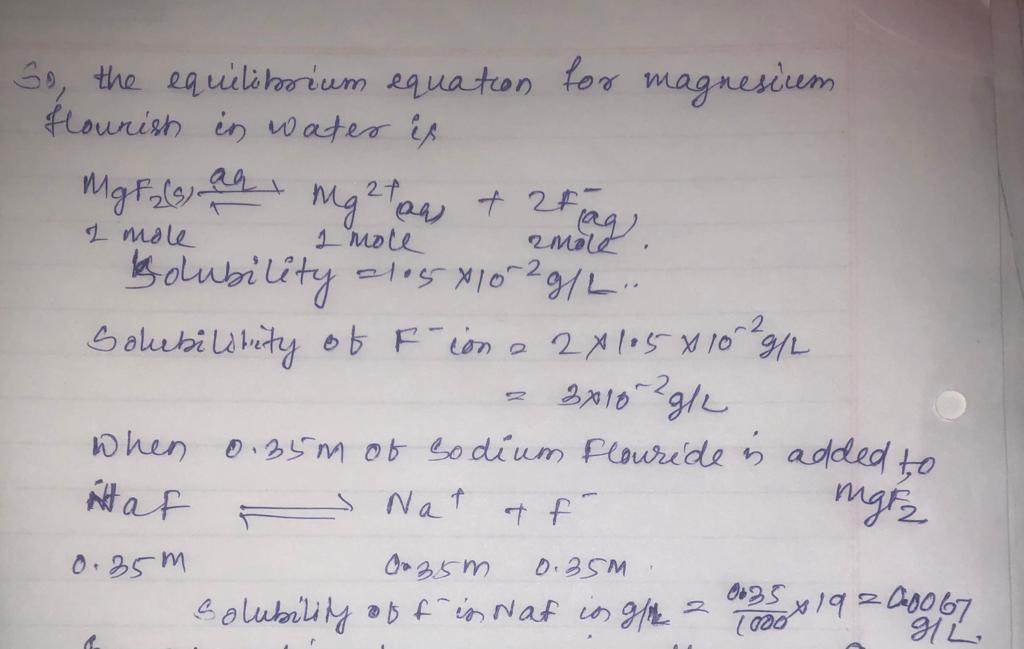 So, the equilibrium equation for magnesium
flourish in water is
MgF₂(s) ⇌ aq Mg²⁺(aq) + 2F⁻(aq)
1 mole 1 mole 2 mole.
Solubility = 1.5 × 10⁻² g/L..
Solubility of F⁻ ion = 2 × 1.5 × 10⁻² g/L
= 3×10⁻² g/L
When 0.35M of Sodium Flouride is added to
MgF₂
NaF ⇌ Na⁺ + F⁻
0.35M 0.35M 0.35M.
Solubility of F⁻ in NaF in g/L = 0.35/1000 × 19 = 0.0067
g/L.